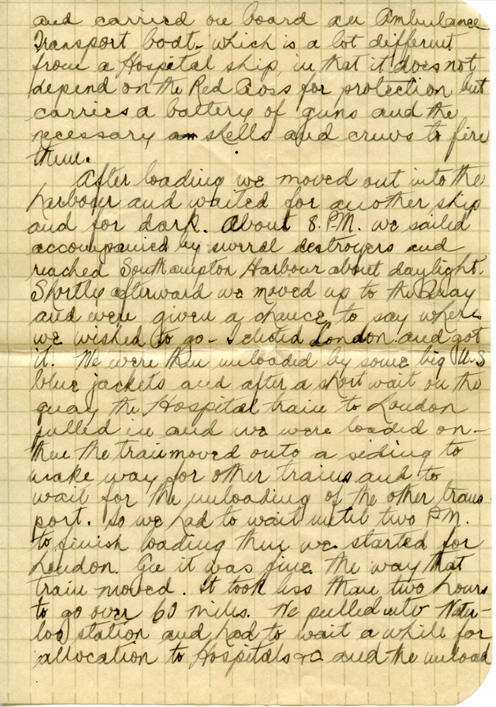 and carried on board an Ambulance
Transport boat, which is a lot different
from a Hospital ship, in that it does not
depend on the Red Cross for protection but
carries a battery of guns and the
necessary shells and crews to fire
them.
After loading we moved out into the
harbour and waited for another ship
and for dark. About 8. P.M. we sailed
accompanied by several destroyers and
reached Southampton Harbour about daylight.
Shortly afterward we moved up to the Quay
and were given a chance to say where
we wished to go - I elected London and got
it. We were then unloaded by some big U.S
blue jackets and after a short wait on the
quay the Hospital train to London
pulled in and we were loaded on -
then the train moved onto a siding to
make way for other trains and to
wait for the unloading of the other trans
port. So we had to wait until two P.M.
to finish loading then we started for
London. Gee it was fine the way that
train moved. It took less than two hours
to go over 60 miles. We pulled into Water-
loo station and had to wait a while for
allocation to Hospitals and the unload